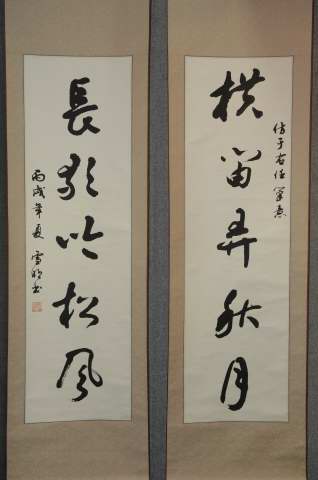 横笛弄秋月
仿于右任筆意
長歌吟松風
丙戌年夏 雪明书